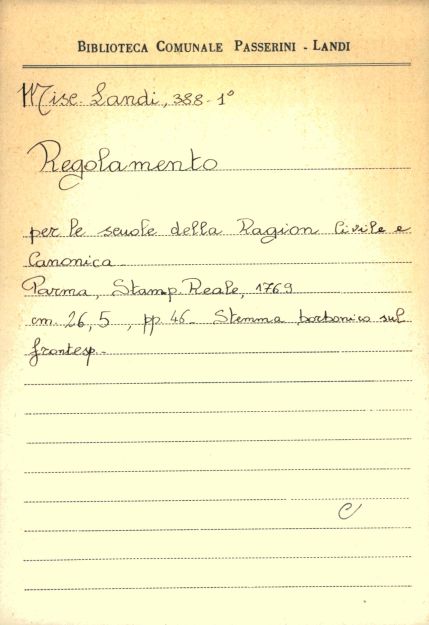 BIBLIOTECA COMUNALE PASSERINI - LANDI
Misc. Landi, 388-1°
Regolamento
per le scuole della Ragion Civile e
Canonica
Parma, Stamp. Reale, 1769
cm. 26,5, pp 46- Stemma borbonico sul
frontesp.-
C